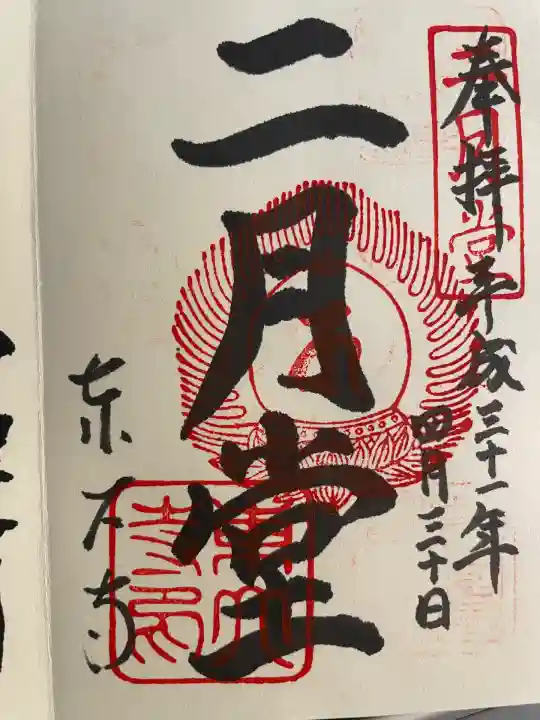 奉拝 平成三十一年
四月三十日
二月堂
東大寺